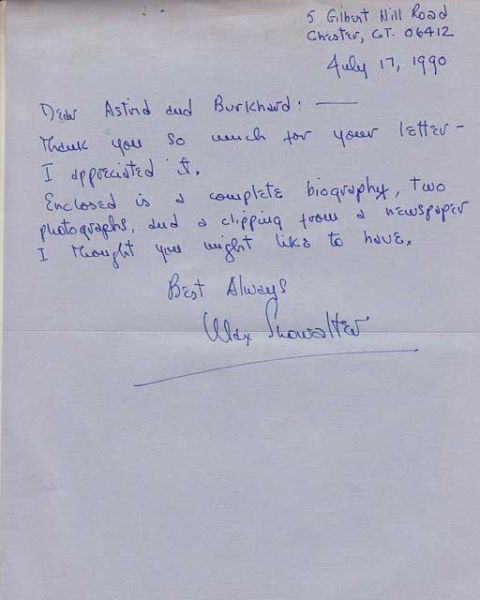 5 Gilbert Hill Road
Chester, CT. 06412
July 17, 1990
Dear Astrid and Burkhard: —
Thank you so much for your letter -
I appreciated it.
Enclosed is a complete biography, two
photographs, and a clipping from a newspaper
I thought you might like to have.
Best Always
Max Showalter